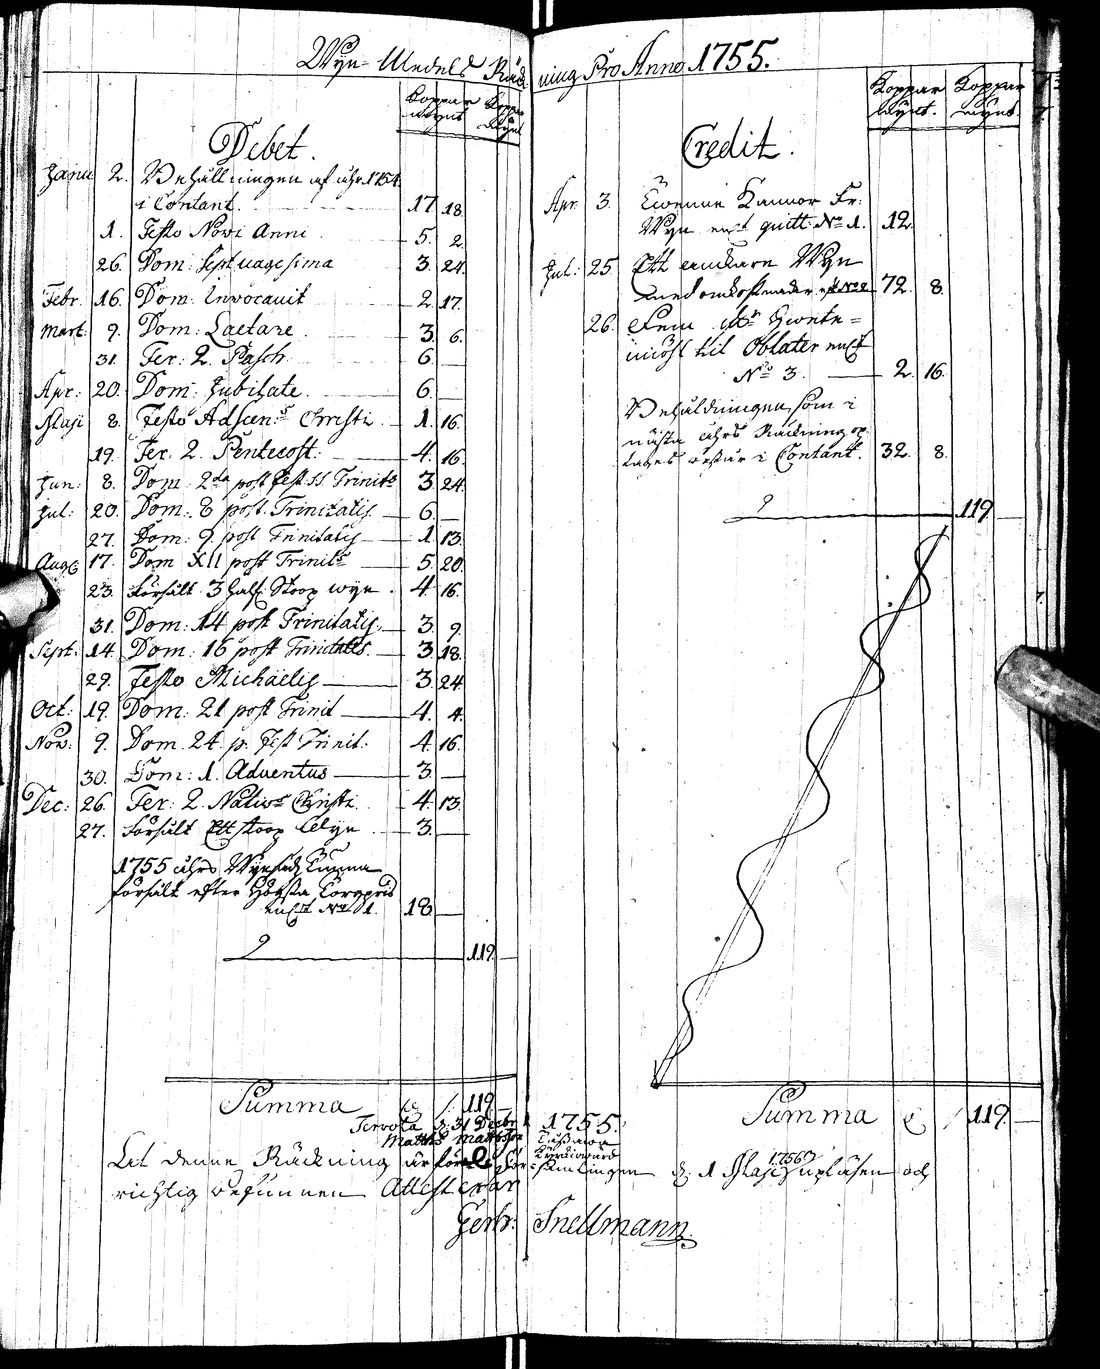 Wyn-Medels Räkning Pro Anno 1755.
Koppar Mynt. Koppar Mynt
Debet.
Janu 2. Behållningen af åhr 1754
i Contant. 17 18.
1. Festo Novi Anni 5. 2.
26. Dom: Septuagesima 3. 24.
Febr. 16. Dom: Invocavit 2. 17.
Mart: 9. Dom: Laetare 3. 6.
31. Fer: 2. Pasch. 6.
Apr: 20. Dom: Jubilate. 6.
Maji 8. Festo Adscens: Christi 1. 16.
19. Fer. 2. Pentecost. 4. 16.
Jun: 8. Dom: 2da post Fest SS Trinit: 3. 24.
Jul: 20. Dom: 8 post. Trinitatis 6.
27. Dom: 9 post Trinitatis 1. 13.
Aug: 17. Dom XII post Trinit: 5. 20.
23. Försålt 3 half Stoop wyn. 4. 16.
31. Dom: 14 post Trinitatis 3. 9.
Sept: 14. Dom: 16 post Trinitatis. 3. 18.
29. Festo Michaelis 3. 24.
Oct: 19. Dom: 21 post Trinit 4. 4.
Nov: 9. Dom. 24. p. Fest Trinit: 4. 16.
30. Dom: 1. Adventus 3.
Dec: 26. Fer: 2. Nativ: Christi 4. 13.
27. Försålt Ett stoop Wyn 3.
1755 åhrs Wynsäds
försålt efter Högsta
No 1. 18.
119.
Summa 119.
Koppar Mynt. Koppar Mynt.
Credit.
Apr. 3. Twenne Kannor Fr:
Wyn quitt: No 1. 12.
Jul: 25. Ett anckare Wyn
med omkostnader No 2. 72. 8.
26. Fem
til Oblater
No 3. 2. 16.
Behåldningen, som i
nästa åhrs Räckning op-
tages består i Contant. 32. 8.
119
Summa 119.
Tervola d: 31 Decbr 1755.
Matths Mattsson
At denne Räckning är för samlingen d: 1 Maji 1756 upläsen och
richtig befunnen Attesterar
Gerh: Snellmann.